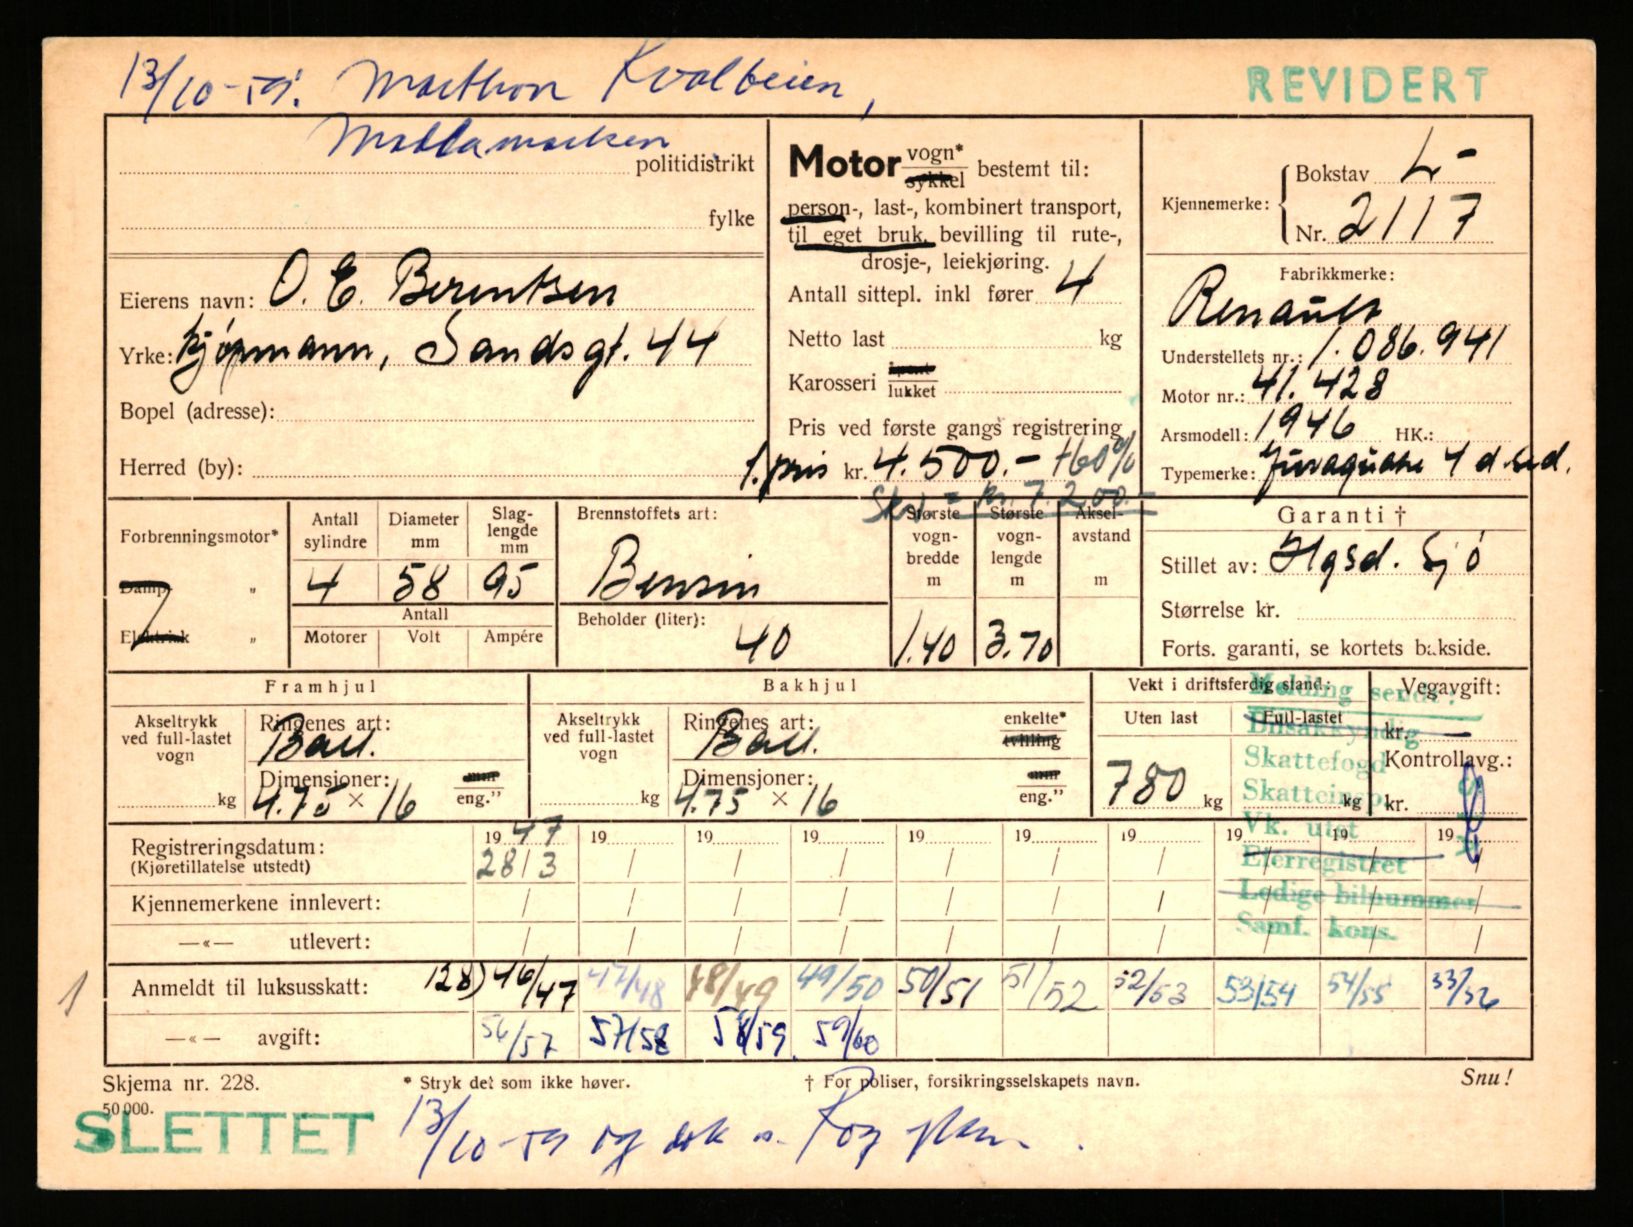 13/10-59. Marthon Kvalbeien,
REVIDERT
Maddamarken
politidistrikt
fylke
Eierens navn: O. E. Berentsen
Yrke: Kjøpmann, Sandsgt. 44
Bopel (adresse):
Herred (by):
Motor vogn* sykkel bestemt til:
person-, last-, kombinert transport,
til eget bruk, bevilling til rute-,
drosje-, leiekjøring.
Antall sittepl. inkl fører 4
Netto last kg
Karosseri åpent lukket
Pris ved første gangs registrering
1. pris kr. 4.500.- +60%
= kr. 7.200.-
Kjennemerke: Bokstav L-
Nr. 2117
Fabrikkmerke:
Renault
Understellets nr.: 1.086.941
Motor nr.: 41.428
Årsmodell: 1946 HK.:
Typemerke: Juvaquatre 4 d. sed.
Forbrenningsmotor*
Damp- „
Elektrisk „
Antall sylindre Diameter mm Slag-lengde mm
4 58 95
Antall
Motorer Volt Ampére
Brennstoffets art:
Bensin
Beholder (liter):
40
Største vogn-bredde m Største vogn-lengde m Aksel-avstand m
1.40 3.70
Garanti †
Stillet av: Hgsd. Sjø
Størrelse kr.
Forts. garanti, se kortets bakside.
Framhjul
Akseltrykk ved full-lastet vogn
kg
Ringenes art:
Ball.
Dimensjoner: mm
4.75 × 16 eng.”
Bakhjul
Akseltrykk ved full-lastet vogn
kg
Ringenes art: enkelte*
Ball. tvilling
Dimensjoner: mm
4.75 × 16 eng.”
Vekt i driftsferdig stand:
Uten last Full-lastet
780 kg kg
Vegavgift:
kr. —
Kontrollavg.:
kr.
Melding sendt:
Bilsakkyndig
Skattefogd
Skatteinsp.
Vk. utst
Eierregistret
Ledige bilnummer
Samf. kons.
Registreringsdatum: 19 47 19 19 19 19 19 19 19 19 19
(Kjøretillatelse utstedt) 28/3 / / / / / / / / /
Kjennemerkene innlevert: / / / / / / / / / /
—«— utlevert: / / / / / / / / / /
1
Anmeldt til luksusskatt: 128) 46/47 47/48 48/49 49/50 50/51 51/52 52/53 53/54 54/55 55/56
—«— avgift: 56/57 57/58 58/59 59/60
Skjema nr. 228. * Stryk det som ikke høver. † For poliser, forsikringsselskapets navn. Snu!
50 000.
SLETTET
13/10-59 og